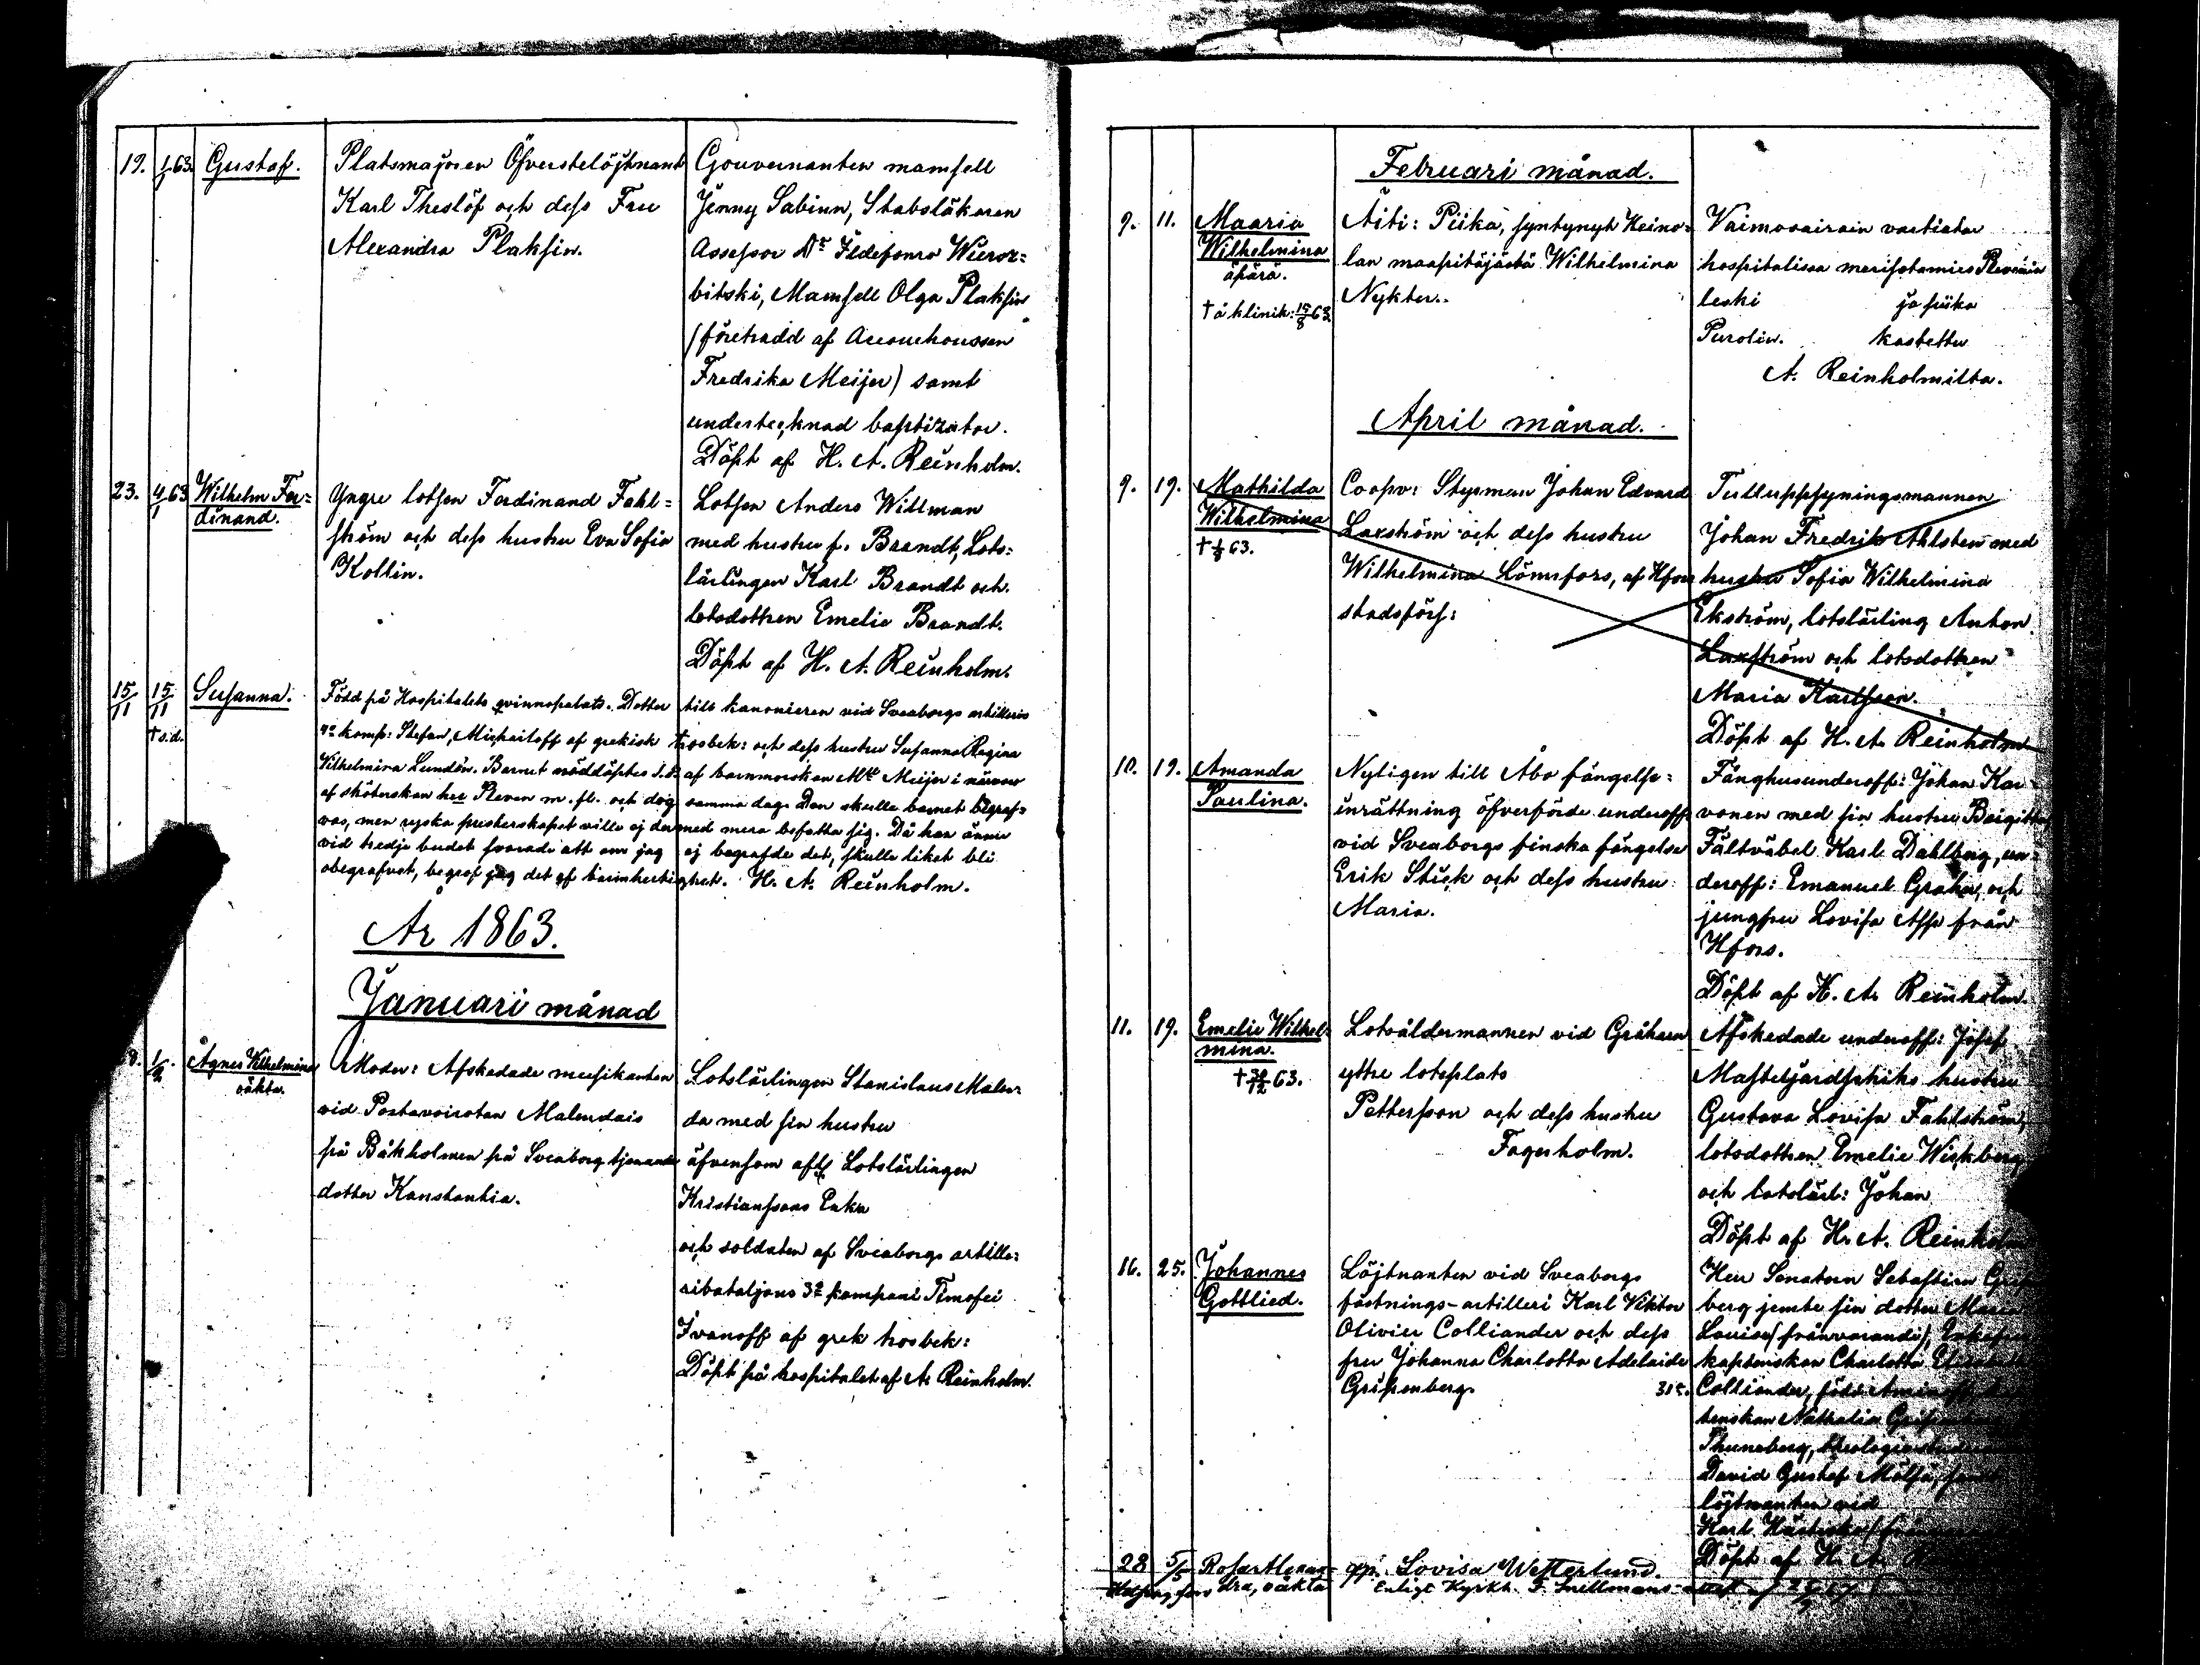 19. 1/1 63. Gustaf. Platsmajoren Öfverstelöjtnant Gouvernanten mamsell
Karl Theslöf och dess Fru Jenny Sabinn, Stabsläkaren
Alexandra Plaksin. Assessor Dr Ildefonso Wieror=
bitski, Mamsell Olga Plaksin
(företrädd af Accoucheussen
Fredrika Meijer) samt
undertecknad baptizator.
Döpt af H. A. Reinholm.
23. 4/1 63 Wilhelm Fer= Yngre lotsen Ferdinand Fahl= Lotsen Anders Willman
dinand. ström och dess hustru Eva Sofia med hustru f. Brandt, Lots=
Kollin. lärlingen Karl Brandt och
lotsdottren Emelie Brandt.
Döpt af H. A. Reinholm.
15/11 15/11 Susanna. Född på Hospitalets qvinnopalats. Dotter till kanonieren vid Sveaborgs artilleris
† s.d. 4de komp: Stefan Michailoff af grekisk trosbek: och dess hustru Susanna Regina
Vilhelmina Lundén. Barnet nöddöptes s.d. af barnmorskan Mll Meijer i närvaro
af sköterskan Pleven m. fl. och dog samma dag. Den skulle barnet begraf=
vas, men ryska presterskapet ville ej dermed mera befatta sig. Då han ännu
vid tredje budet svarade att om jag ej begrafde det, skulle liket bli
obegrafvet, begrof jag det af barmhertighet. H. A. Reinholm.
År 1863.
Januari månad
8. Agnes Vilhelmina Moder: Afskedade musikanten Lotslärlingen Stanislaus Malen=
oäkta. vid Malendais da med sin hustru
på Båkholmen på Sveaborg tjenande äfvensom Lotslärlingen
dotter Konstantia. Kristianssons Enka
och soldaten af Sveaborgs artille=
ribataljons 3e kompani Timofei
Ivanoff af grek trosbek:
Döpt på hospitalet af A. Reinholm.
Februari månad.
9. 11. Maaria Äiti: Piika, syntynyt Heino= Vaimovairain vartiator
Wilhelmina lan maapitäjästä Wilhelmina hospitalissa
äpärä. Nykter. leski ja piika
† å klinik: 15/8 63. Purolin. kastettu
A. Reinholmilta.
April månad.
9. 19. Mathilda Coopv: Styrman Johan Edvard Tulluppsyningsmannen
Wilhelmina Laxström och dess hustru Johan Fredrik Ahlsten med
† 63. Wilhelmina Lönnfors, af Hfors hustru Sofia Wilhelmina
stadsförs: Ekström, lotslärling Anton
Laxström och lotsdottren
Maria Karlsson.
Döpt af H. A. Reinholm
10. 19. Amanda Nyligen till Åbo fängelse= Fånghusunderoff: Johan Kar=
Paulina. inrättning öfverförde underoff vonen med sin hustru Brigitta
vid Sveaborgs finska fängelse Fältväbel Karl Dahlberg, un=
Erik Stick och dess hustru deroff: Emanuel Grahn, och
Maria. jungfru Lovisa från
Hfors.
Döpt af H. A. Reinholm.
11. 19. Emelie Wilhel= Lotsåldermannen vid Gråharu Afskedade underoff: Josef
mina. yttre lotsplats hustru
† 30/12 63. Pettersson och dess hustru Gustava Lovisa Fahlström,
Fagerholm. lotsdottren Emelie Wickberg
och lotslärl: Johan
Döpt af H. A. Reinholm
16. 25. Johannes Löjtnanten vid Sveaborgs Herr Senatorn Sebastian
Gottlied. fästnings-artilleri Karl Viktor berg jemte sin dotter Maria
Olivier Colliander och dess Louise (frånvarande), Enkefru
fru Johanna Charlotta Adelaide kaptenskan Charlotta
Gripenberg. 31 å. Colliander, född Aminoff,
tenskan Nathalia
Thuneberg,
David Gustaf
löjtnanten vid
Karl
Döpt af H. A.
28 5/5 Rosa Alexan= qp. Lovisa Westerlund.
Helsingfors dra, oäkta Enligt Kyrkh. F. Snellmans attest af